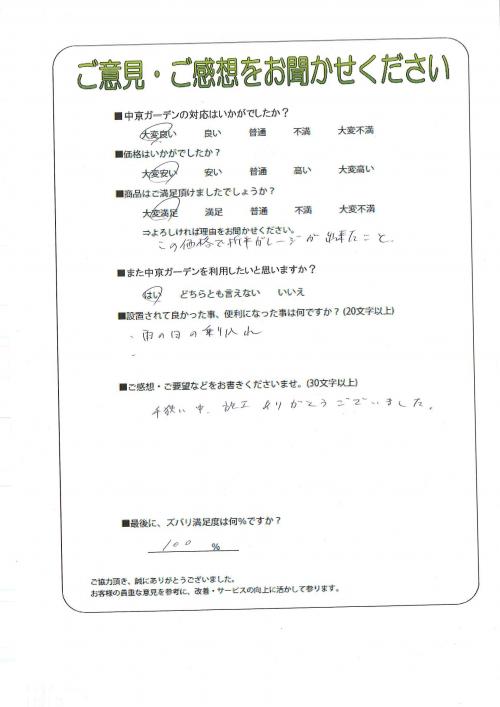 ご意見・ご感想をお聞かせください
■中京ガーデンの対応はいかがでしたか？
大変良い 良い 普通 不満 大変不満
■価格はいかがでしたか？
大変安い 安い 普通 高い 大変高い
■商品はご満足頂けましたでしょうか？
大変満足 満足 普通 不満 大変不満
⇒よろしければ理由をお聞かせください。
この価格で ガレージが出来たこと、
■また中京ガーデンを利用したいと思いますか？
はい どちらとも言えない いいえ
■設置されて良かった事、便利になった事は何ですか？(20文字以上)
・雨の日の乗り入れ
■ご感想・ご要望などをお書きくださいませ。(30文字以上)
中、施工ありがとうございました。
■最後に、ズバリ満足度は何％ですか？
100 ％
ご協力頂き、誠にありがとうございました。
お客様の貴重な意見を参考に、改善・サービスの向上に活かして参ります。